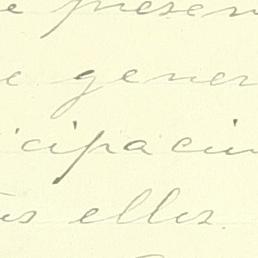 e presen
e gener
icipacin
us elles.